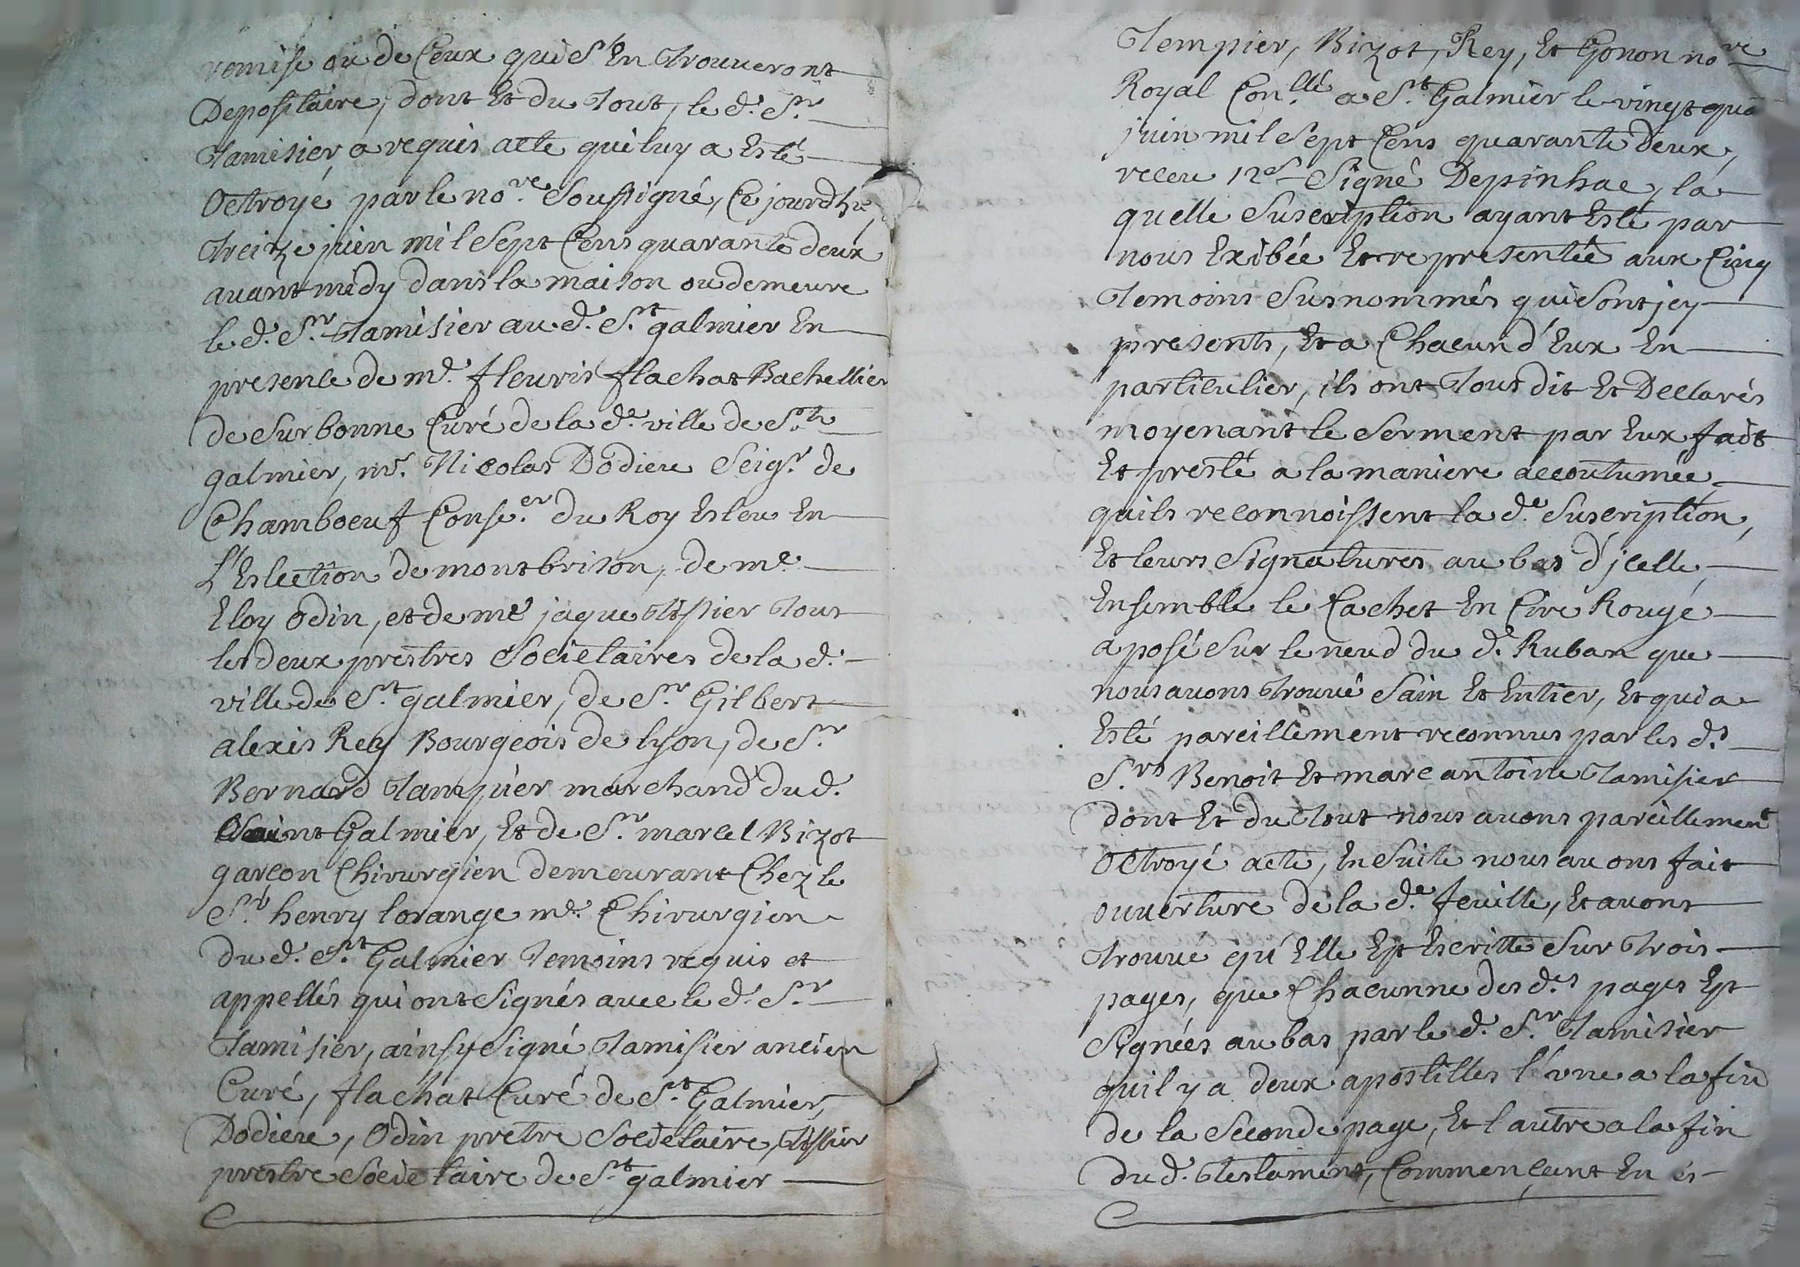 remise ou de Ceux qui s'En trouveront
Depositaire, dont Et du tout, le d. Sr.
Tamisier a requis acte qui luy a Esté
Octroyé par le nore. soussigné, Ce jourdhuy
treitze juin mil sept Cens quarante deux
avant midy dans la maison ou demeure
le d. Sr. Tamisier au d. St. galmier En
presence de me. fleuris flachat Bachellier
de surbonne Curé de la de. ville de St.
galmier, mr. Nicolas Dodieu Seigr. de
Chamboeuf Conser. du Roy Esleu En
L'Eslection de montbrison, de me.
Eloy Odin, et de me. jaque tissier tous
les deux prestres Societaires de la d.
ville de St. galmier, de Sr. Gilbert
alexis Rey Bourgeois de lyon, de Sr.
Bernard marchand du d.
Saint Galmier, Et de Sr. marcel Bizot
garçon Chirurgien demeurant Chez le
Sr. henry lorange me. Chirurgien
du d. St. Galmier temoins requis et
appellés qui ont signés avec le d. Sr.
Tamisier, ainsy signé Tamisier ancien
Curé, flachat Curé de St. Galmier,
Dodieu, Odin pretre Societaire, tissier
prestre Societaire de St. galmier
Tempier, Bizot, Rey, Et Gonon nore.
Royal Con.llé a St. Galmier le vingt qua
juin mil sept Cens quarante deux,
receu 12s. signé Depinhac, la
quelle suscription ayant Esté par
nous Exibée Et representée aux Cinq
temoins susnommés qui sont jcy
presents, Et a Chacun d'Eux En
particulier, ils ont tous dit Et Declarés
moyenant le serment par Eux fait
Et presté a la maniere accoutumée,
quils reconnoissent la de. suscription,
Et leurs signatures au bas d'jcelle,
Ensemble le Cachet En Cire Rouge
aposé sur le neud du d. Ruban que
nous avons trouvé sain Et Entier, Et qui a
Esté pareillement reconnus par les ds.
Srs. Benoit Et marc antoine Tamisier
dont Et du tout nous avons pareillement
Octroyé acte, En suite nous avons fait
ouverture de la de. feuille, Et avons
trouvé qu'Elle Est Escritte sur trois
pages, que Chacunne des ds. pages Est
signées au bas par le d. Sr. Tamisier
quil y a deux apostilles l'une a la fin
de la seconde page, Et l'autre a la fin
du d. testament, Commençant En ès